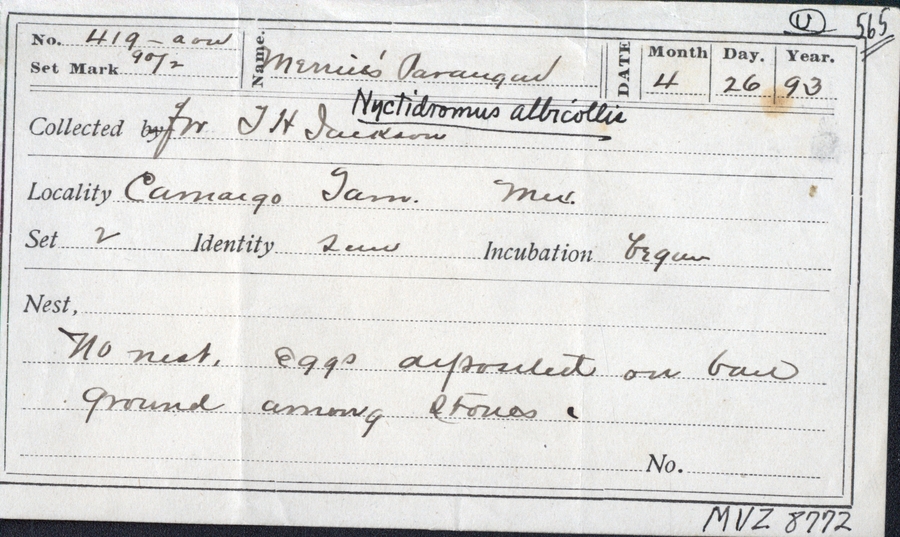 U 565
No. 419 - aou Name. Merrill's Parauque DATE Month Day. Year.
Set Mark 90/2 4 26 93
Nyctidromus albicollis
Collected by for T H Jackson
Locality Camargo Tam. Mex.
Set 2 Identity sure Incubation began
Nest,
No nest. Eggs deposited on bare
ground among stones.
No.
MVZ 8772